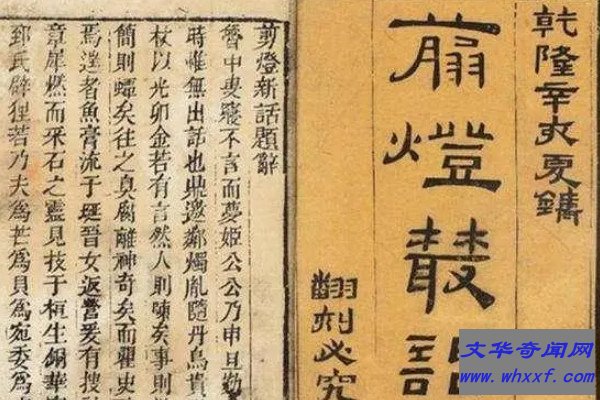 乾隆辛亥夏鐫
翦燈叢話
翻刻必究
剪燈新話題辭
魯中叟寢不言而夢姬公公乃申旦
時雖無出話也地邀鄰燭胤隨丹鳥
杖以光卯金若有言然人則矣事則
簡則蠕矣往之臭腐離神奇矣而瞿史
焉達者魚膏流于斑晉女返營爰有搜
意犀燃而采石之靈見技于桓生銅華
郅氏劈狸若乃夫為芒為貝為宛委為
文华奇闻网
www.whxxf.com